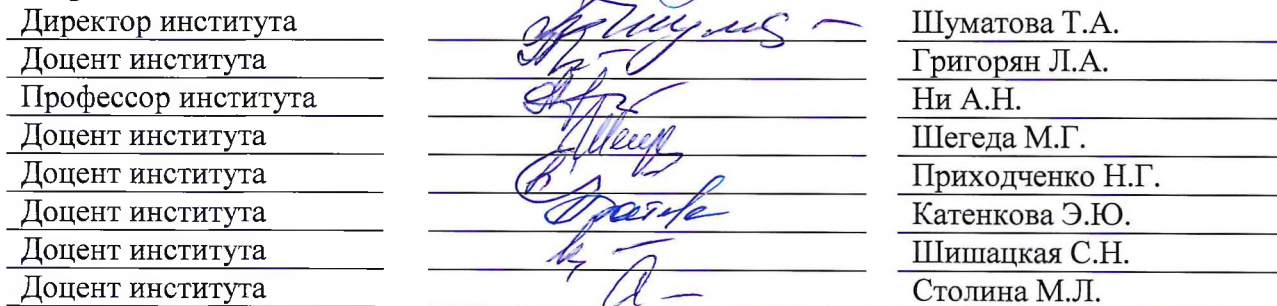 Директор института Шуматова Т.А.
Доцент института Григорян Л.А.
Профессор института Ни А.Н.
Доцент института Шегеда М.Г.
Доцент института Приходченко Н.Г.
Доцент института Катенкова Э.Ю.
Доцент института Шишацкая С.Н.
Доцент института Столина М.Л.